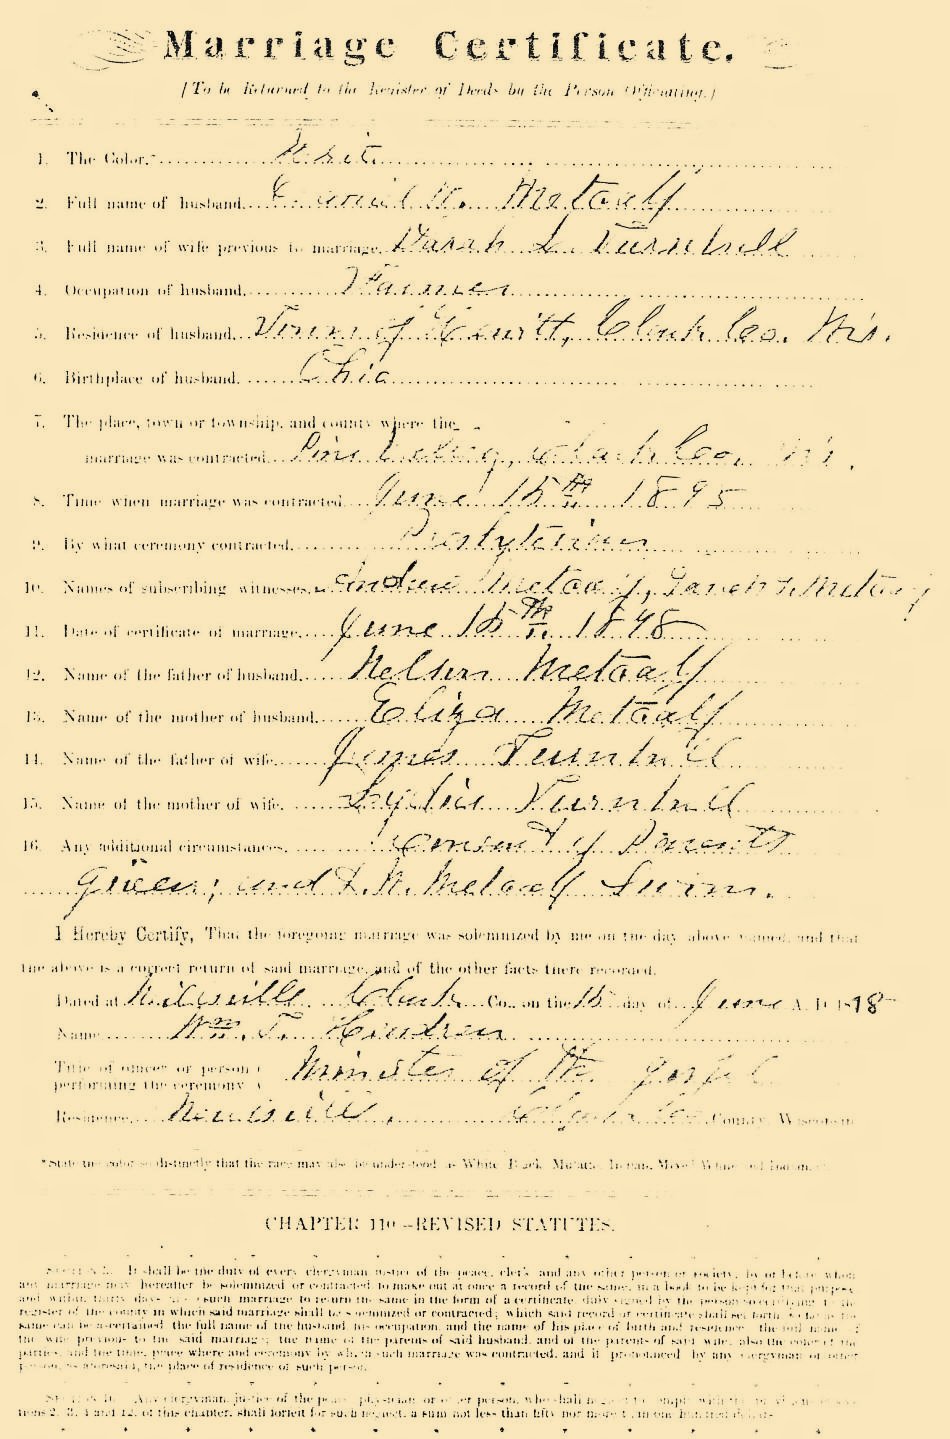 Marriage Certificate.
[To be Returned to the Register of Deeds by the Person Officiating.]
1. The Color,* White
2. Full name of husband, W. Metcalf
3. Full name of wife previous to marriage, Sarah L. Turnbull
4. Occupation of husband, Farmer
5. Residence of husband, Town of Hewitt, Clark Co. Wis.
6. Birthplace of husband, Ohio
7. The place, town or township, and county where the
marriage was contracted, Pine Valley, Clark Co. Wis.
8. Time when marriage was contracted June 15th 1895
9. By what ceremony contracted, Presbyterian
10. Names of subscribing witnesses, Andrew Metcalf, Sarah Metcalf
11. Date of certificate of marriage, June 15th 1898
12. Name of the father of husband, Nelson Metcalf
13. Name of the mother of husband, Eliza Metcalf
14. Name of the father of wife, James Turnbull
15. Name of the mother of wife, Lydia Turnbull
16. Any additional circumstances, Consent of Parents
Given; and W. Metcalf Sworn.
I Hereby Certify, That the foregoing marriage was solemnized by me on the day above named, and that
the above is a correct return of said marriage, and of the other facts there recorded.
Dated at Clark Co., on the 15 day of June A. D. 18
Name Wm. T. Hendren
Title of officer or person
performing the ceremony Minister of the Gospel
Residence, Neillsville, Clark Co. County, Wisconsin
*State the color so distinctly that the race may also be understood as White, Black, Mulatto, Indian, Mixed White and Indian.
CHAPTER 110—REVISED STATUTES.
It shall be the duty of every clergyman, justice of the peace, clerk and any other person or society, by or before whom
any marriage may hereafter be solemnized or contracted to make out at once a record of the same, in a book to be kept for that purpose
and within thirty days such marriage to return the same in the form of a certificate, duly signed by the person to the
register of the county in which said marriage shall be solemnized or contracted; which said record or certificate shall set forth so far as the
same can be ascertained, the full name of the husband, his occupation, and the name of his place of birth and residence, the full name of
the wife previous to the said marriage; the name of the parents of said husband, and of the parents of said wife; also the color of the
parties, and the time, place where and ceremony by which such marriage was contracted, and if pronounced by any clergyman or other
person, as aforesaid, the place of residence of such person.
Any clergyman, justice of the peace, physician or other person, who shall neglect to comply with the provisions of
tions 2, 3, 4 and 12, of this chapter, shall forfeit for such neglect, a sum not less than fifty nor more than one hundred dollars.